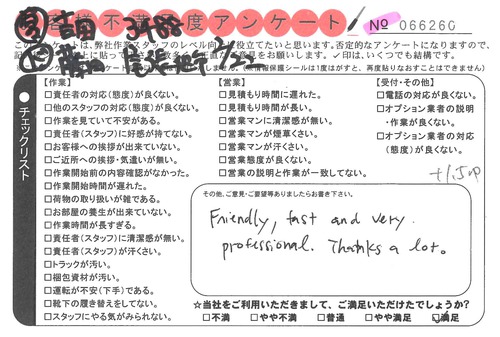 お客様不満足度アンケート
No 066260
このアンケートは、弊社作業スタッフのレベル向上に役立てたいと思います。否定的なアンケートになりますので、
✓印は、いくつでも結構です。
【作業】
□責任者の対応(態度)が良くない。
□他のスタッフの対応(態度)が良くない。
□作業を見ていて不安がある。
□責任者(スタッフ)に好感が持てない。
□お客様への挨拶が出来ていない。
□ご近所への挨拶・気遣いが無い。
□作業開始前の内容確認がなかった。
□作業開始時間が遅れた。
□荷物の取り扱いが雑である。
□お部屋の養生が出来ていない。
□作業時間が長すぎる。
□責任者(スタッフ)に清潔感が無い。
□責任者(スタッフ)が汗くさい。
□トラックが汚い。
□梱包資材が汚い。
□運転が不安(下手)である。
□靴下の履き替えをしてない。
□スタッフにやる気がみられない。
【営業】
□見積もり時間に遅れた。
□見積もり時間が長い。
□営業マンに清潔感が無い。
□営業マンが煙草くさい。
□営業マンが汗くさい。
□営業態度が良くない。
□営業の説明と作業が一致してない。
【受付・その他】
□電話の対応が良くない。
□オプション業者の説明
・作業が良くない。
□オプション業者の対応
(態度)が良くない。
チェックリスト
その他、ご意見・ご要望等ありましたらお書き下さい。
Friendly, fast and very
professional. Thanks a lot.
☆当社をご利用いただきまして、ご満足いただけたでしょうか?
□不満 □やや不満 □普通 □やや満足 ☑満足